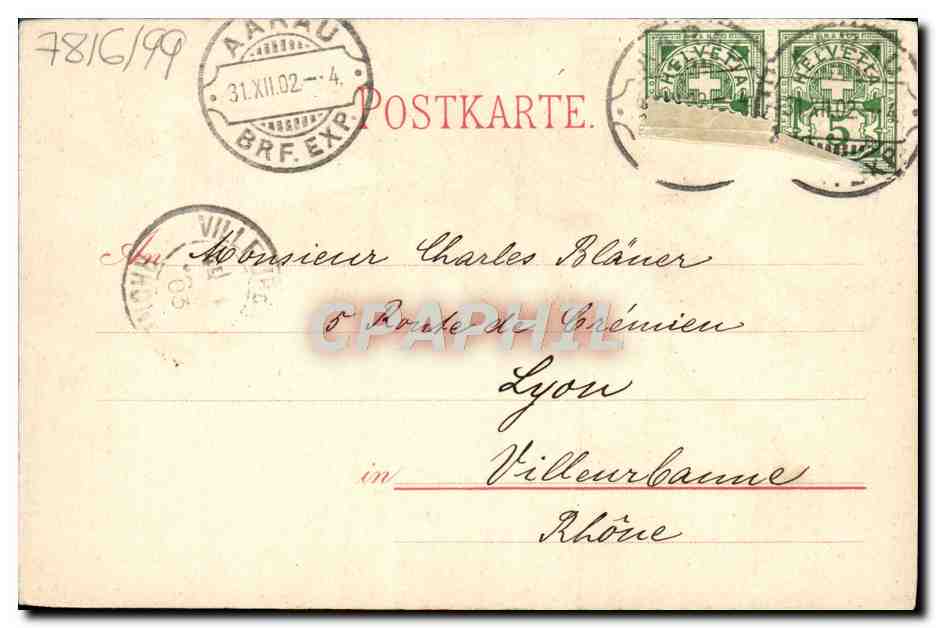 7816/99
AARAU
31.XII.02.–4.
BRF. EXP.
HELVETIA
HELVETIA
XII.02.–4
5
POSTKARTE.
VILLEUR
RHONE
03
An Monsieur Charles Bläuer
5 Route de Crémieu
CPAPHIL
Lyon
in Villeurbanne
Rhône